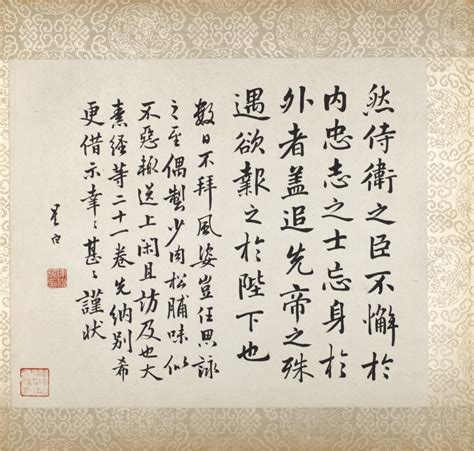 然侍衛之臣不懈於
內忠志之士忘身於
外者蓋追先帝之殊
遇欲報之於陛下也
數日不拜風姿豈任思詠
之至偶製少肉松脯味似
不惡輒送上閑且訪及也大
素經等二十一卷先納別希
更借示幸〻甚〻謹狀